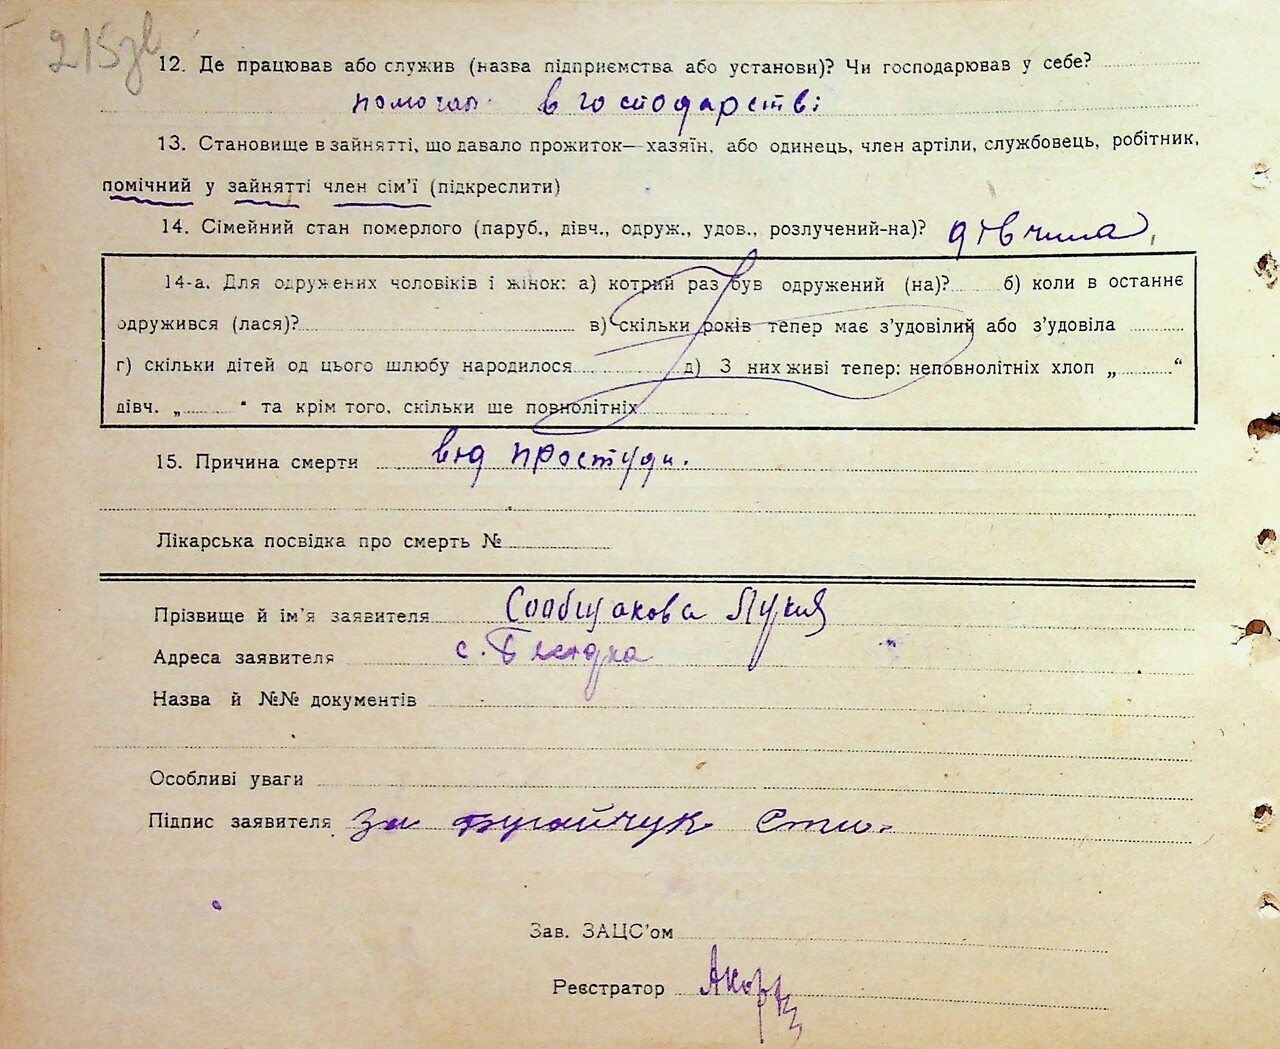 215зв
12. Де працював або служив (назва підприємства або установи)? Чи господарював у себе?
помогал в господарстві
13. Становище в зайнятті, що давало прожиток—хазяїн, або одинець, член артіли, службовець, робітник,
помічний у зайнятті член сім’ї (підкреслити)
14. Сімейний стан померлого (паруб., дівч., одруж., удов., розлучений-на)? дівчина
14-а. Для одружених чоловіків і жінок: а) котрий раз був одружений (на)? б) коли в останнє
одружився (лася)? в) скільки років тепер має з’удовілий або з’удовіла
г) скільки дітей од цього шлюбу народилося д) З них живі тепер: неповнолітніх хлоп „ “
дівч. „ “ та крім того, скільки ще повнолітніх
15. Причина смерти від простуди.
Лікарська посвідка про смерть №
Прізвище й ім’я заявителя Лукия
Адреса заявителя с.
Назва й №№ документів
Особливі уваги
Підпис заявителя За Бугайчук
Зав. ЗАЦС’ом
Реєстратор